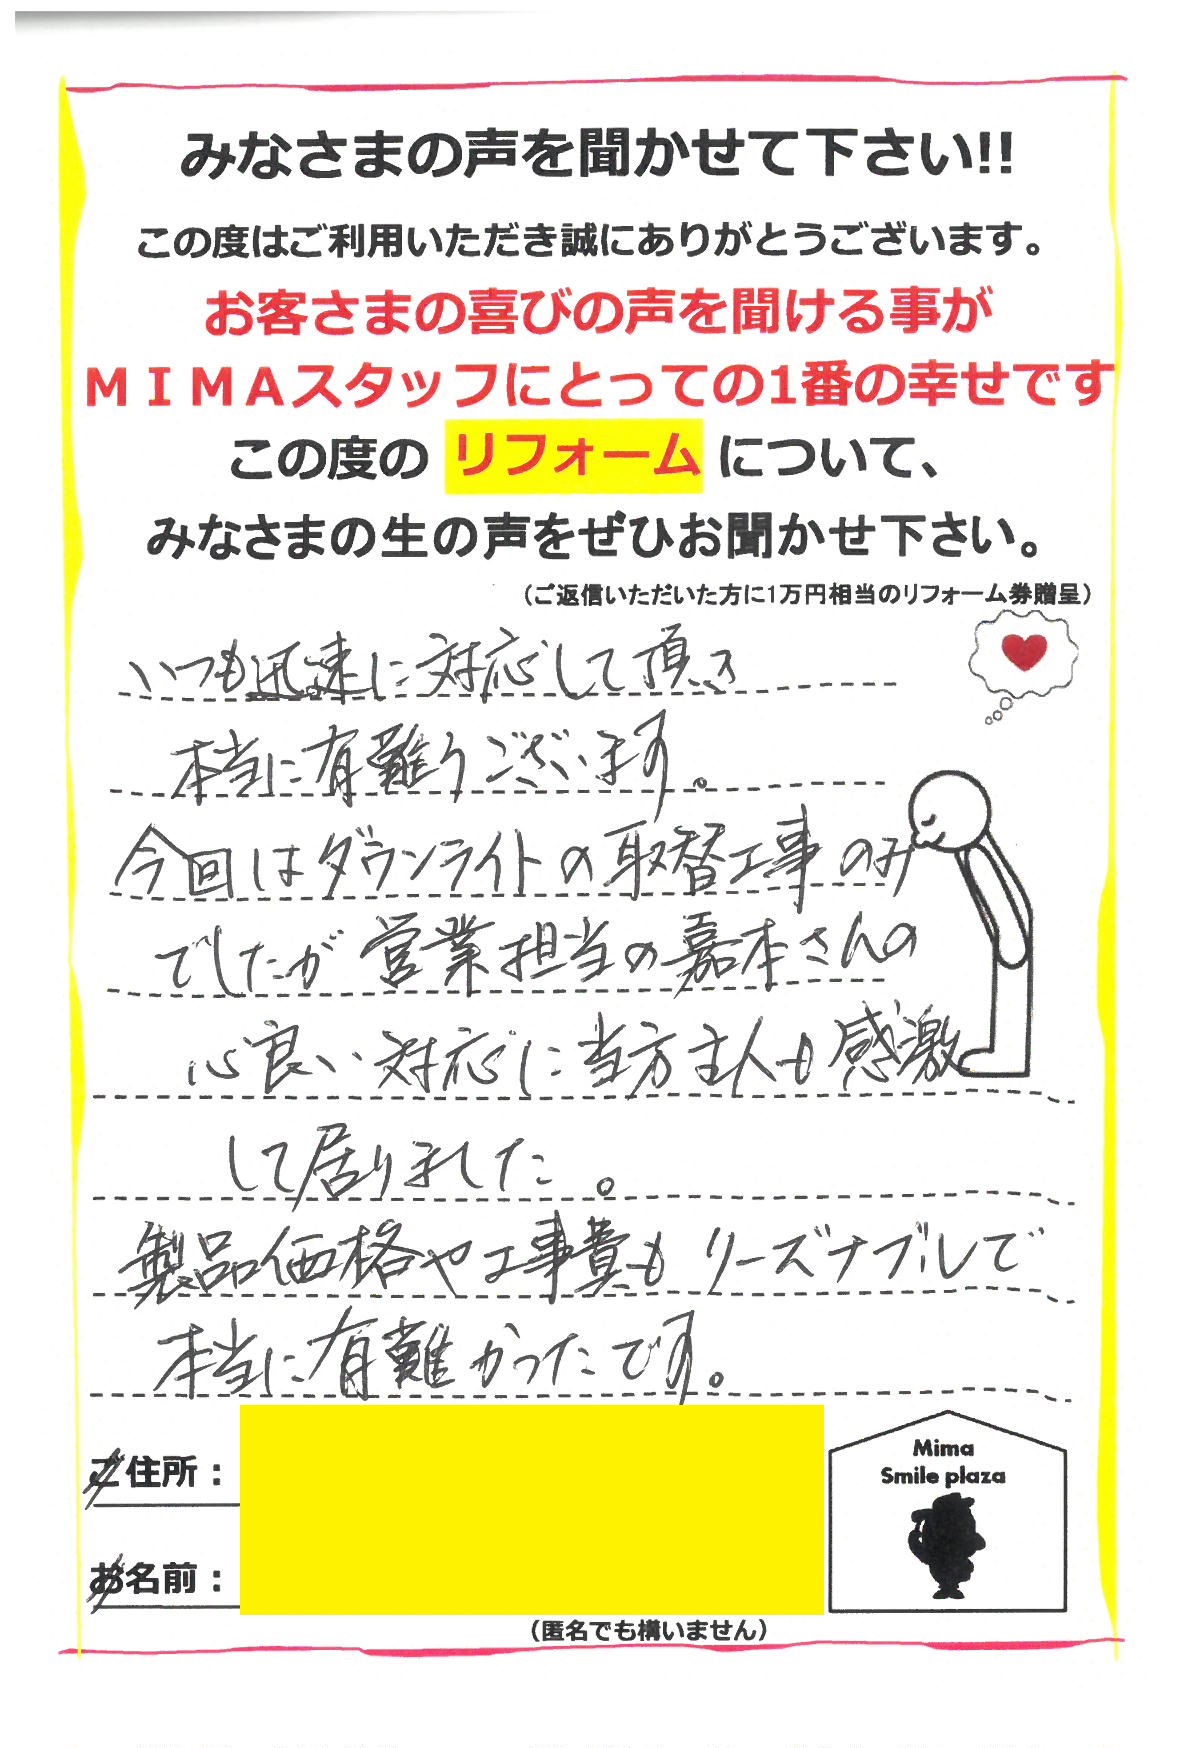 みなさまの声を聞かせて下さい!!
この度はご利用いただき誠にありがとうございます。
お客さまの喜びの声を聞ける事が
ＭＩＭＡスタッフにとっての1番の幸せです
この度の リフォーム について、
みなさまの生の声をぜひお聞かせ下さい。
（ご返信いただいた方に1万円相当のリフォーム券贈呈）
いつも迅速に対応して頂き
本当に有難うございます。
今回はダウンライトの取替工事のみ
でしたが営業担当の嘉本さんの
心良い対応に当方主人も感激
して居りました。
製品価格や工事費もリーズナブルで
本当に有難かったです。
ご住所：
お名前：
（匿名でも構いません）
Mima
Smile plaza